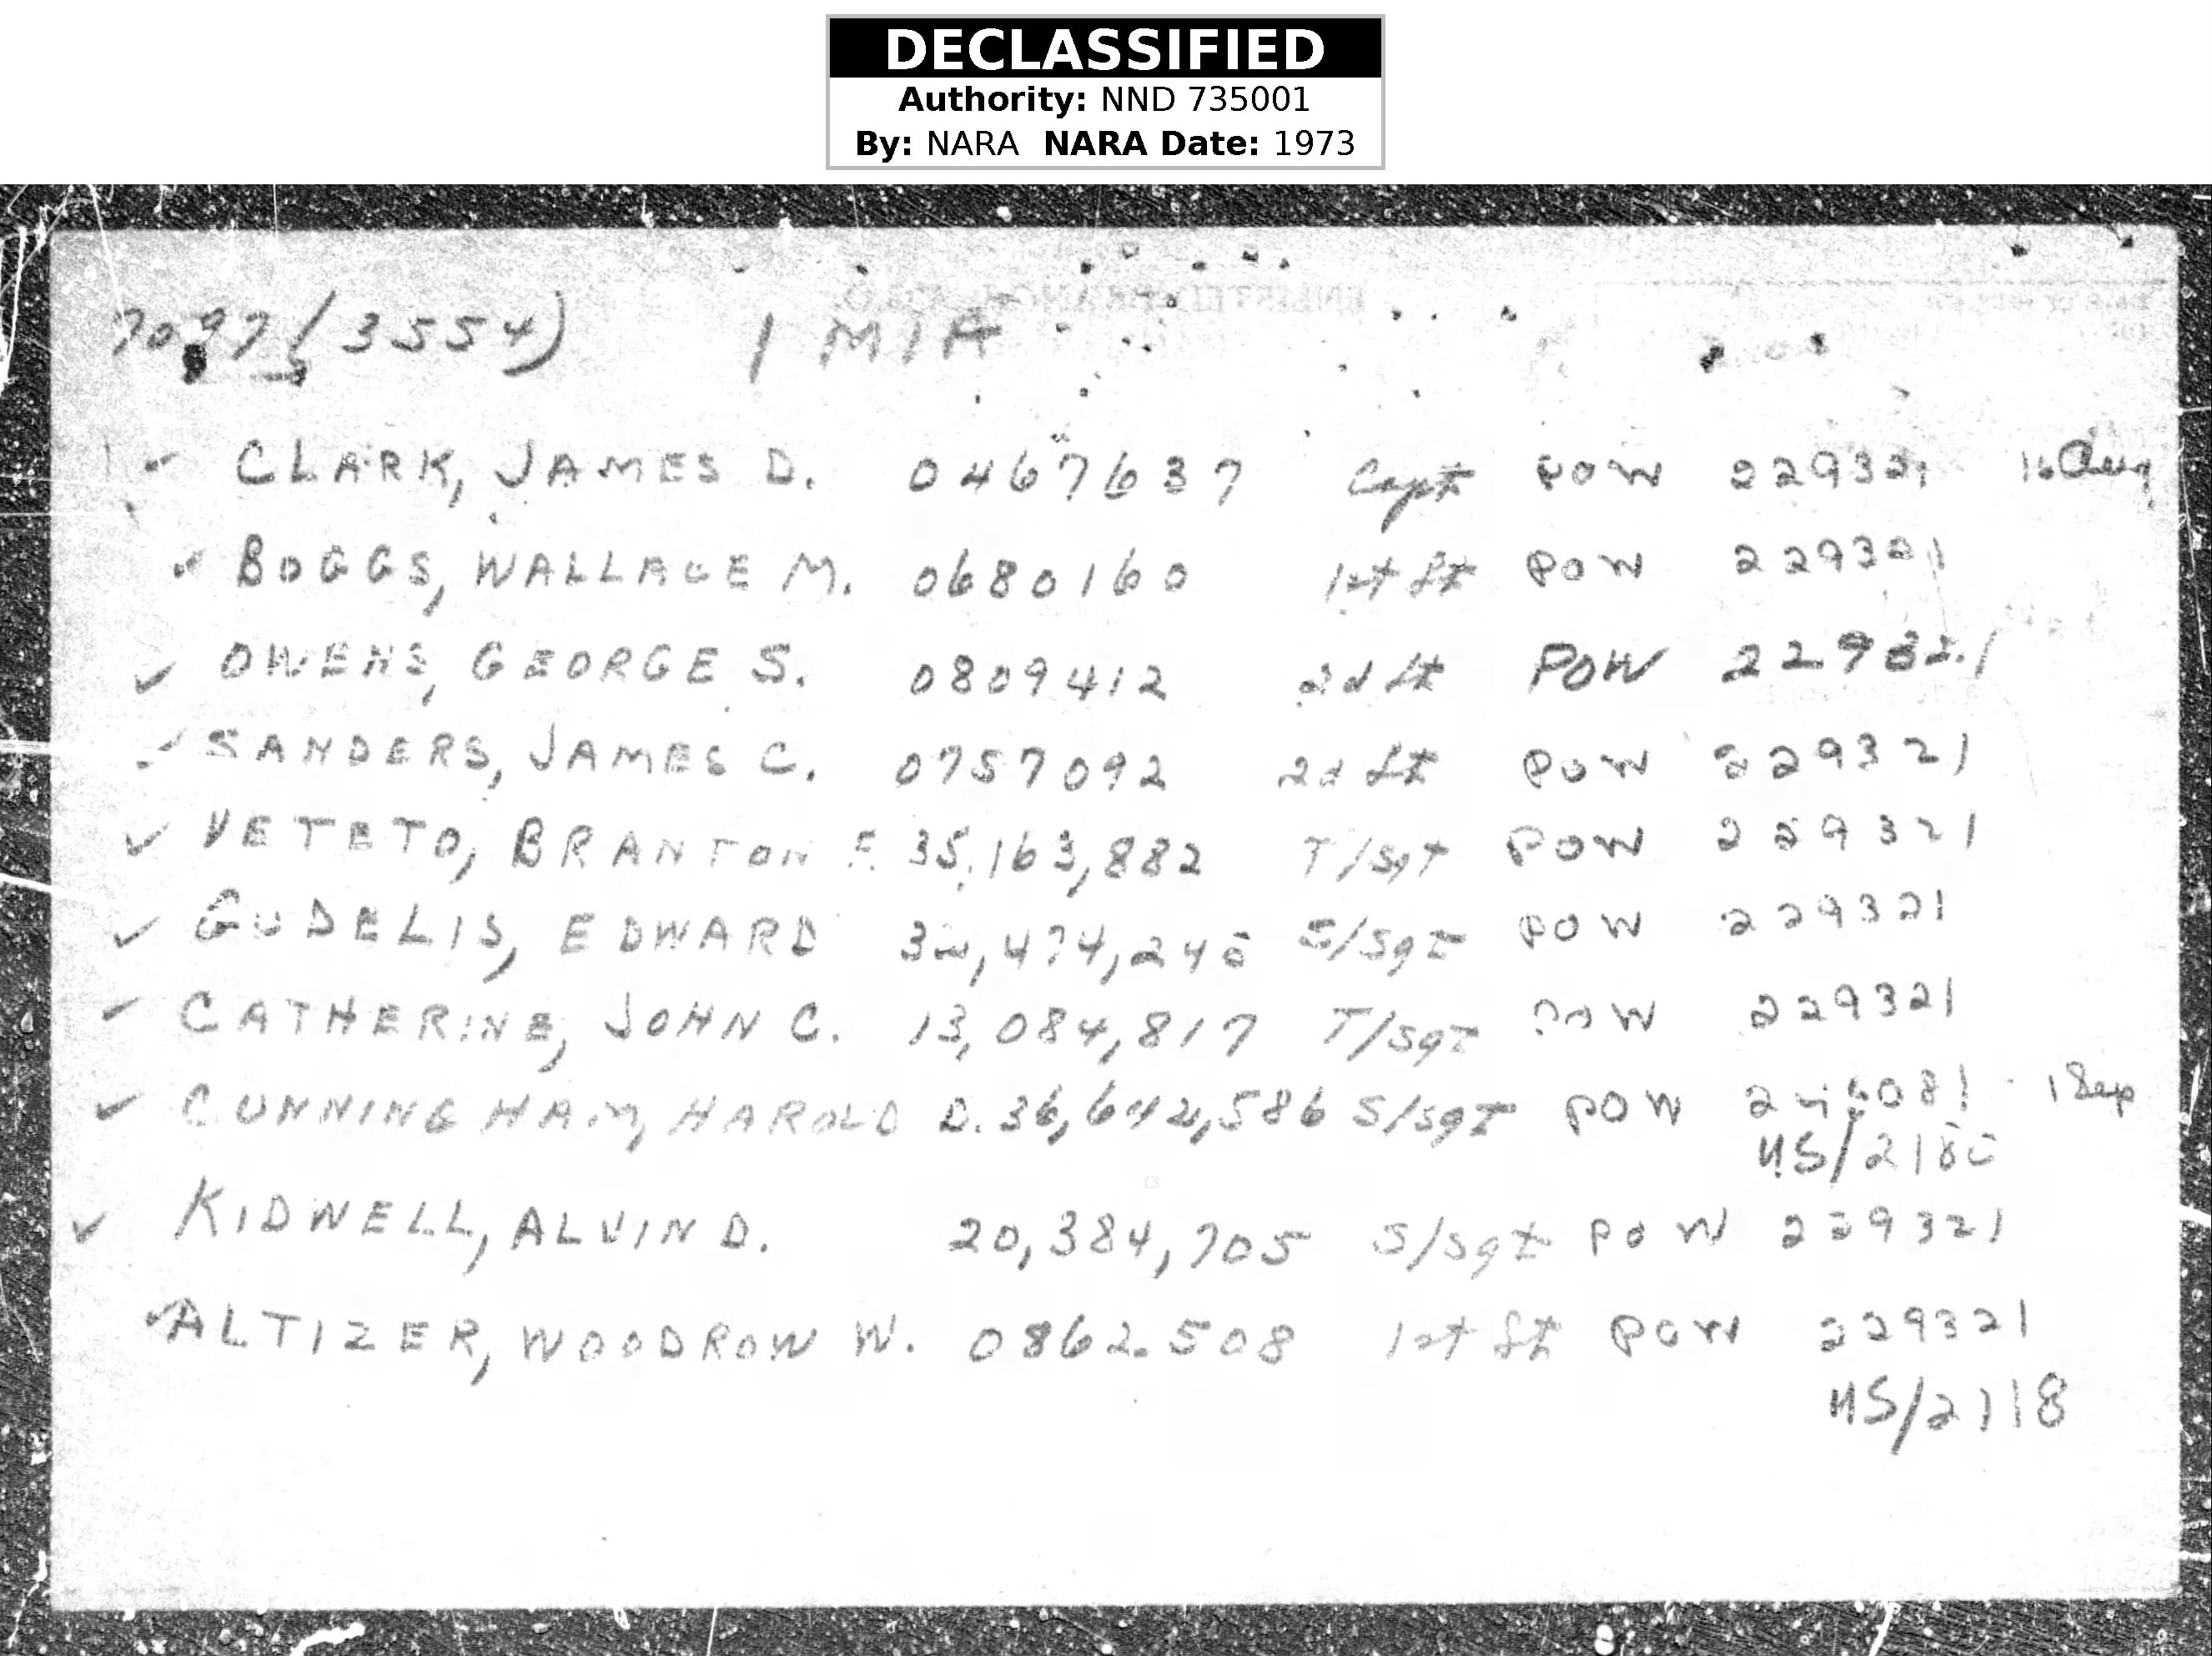 DECLASSIFIED
Authority: NND 735001
By: NARA NARA Date: 1973
7097 (3554) 1 MIA
CLARK, JAMES D. 0467637 Capt POW 229321 16 Aug
BOGGS, WALLACE M. 0680160 1st Lt POW 229321
OWENS, GEORGE S. 0809412 2d Lt POW 229321
SANDERS, JAMES C. 0757092 2d Lt POW 229321
VETETO, BRANTON F. 35,163,882 T/Sgt POW 229321
GUDELIS, EDWARD S/Sgt POW 229321
CATHERINE, JOHN C. 13,084,817 T/Sgt POW 229321
CUNNINGHAM, HAROLD D. 36,642,586 S/Sgt POW 1 Sep
US/2180
KIDWELL, ALVIN D. 20,384,705 S/Sgt POW 229321
ALTIZER, WOODROW W. 0862508 1st Lt POW 229321
US/2118